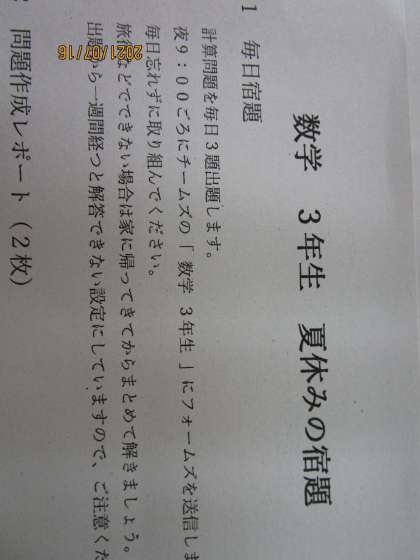 数学 3年生 夏休みの宿題
1 毎日宿題
計算問題を毎日3題出題します。
夜9:00ごろにチームズの「数学 3年生」にフォームズを送信しま
毎日忘れずに取り組んでください。
旅行などでできない場合は家に帰ってきてからまとめて解きましょう。
出題から一週間経つと解答できない設定にしていますので、ご注意くだ
問題作成レポート(2枚)
2021/07/16